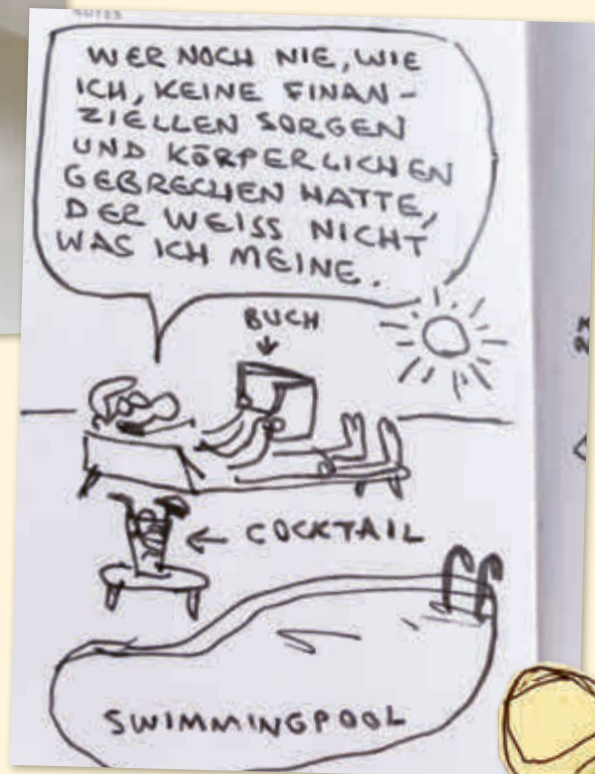 NOTES
WER NOCH NIE, WIE
ICH, KEINE FINAN-
ZIELLEN SORGEN
UND KÖRPERLICHEN
GEBRECHEN HATTE,
DER WEISS NICHT
WAS ICH MEINE.
BUCH
COCKTAIL
SWIMMINGPOOL